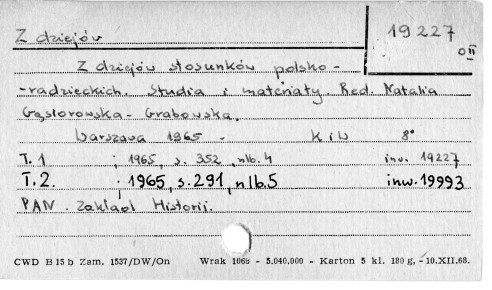 Z dziejów
19227
OII
Z dziejów stosunków polsko-
-radzieckich. Studia i materiały. Red. Natalia
Gąsiorowska-Grabowska.
Warszawa 1965 - KiW 8°
T.1 ; 1965, s. 352, nlb. 4 inw. 19227
T.2. ; 1965, s. 291, nlb. 5 inw. 19993
PAN. Zakład Historii.
CWD B 15 b Zam. 1537/DW/On Wrak 106b - 5.040.000 - Karton 5 kl. 180 g, - 10.XII.68.